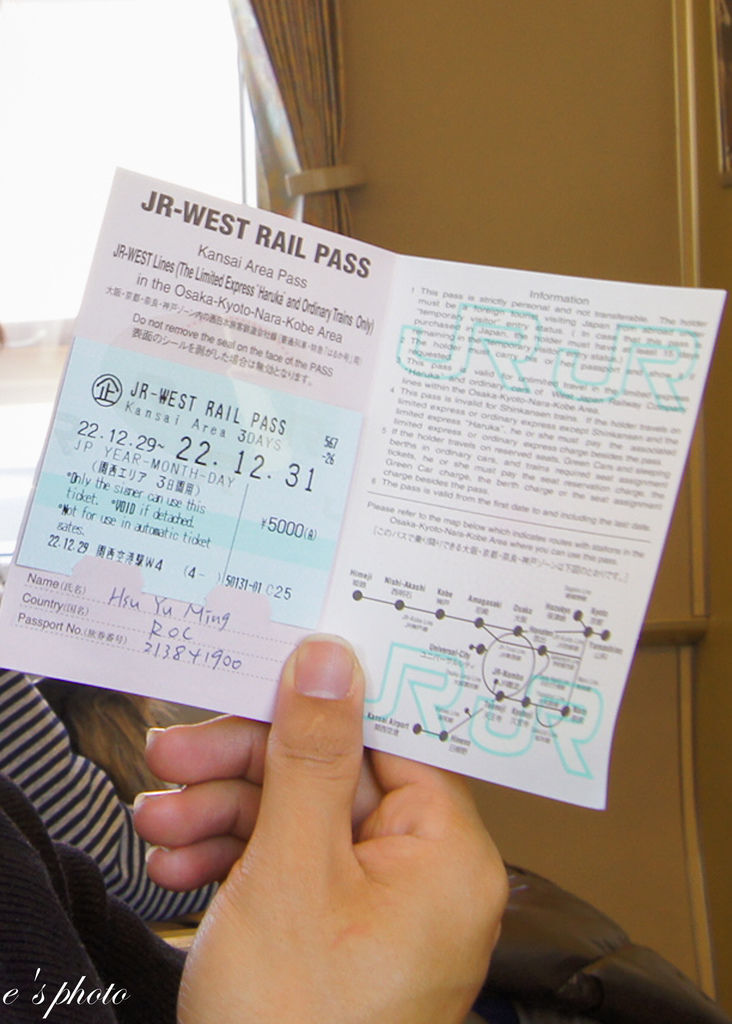 JR-WEST RAIL PASS
Kansai Area Pass
JR-WEST Lines (The Limited Express "Haruka" and Ordinary Trains Only)
in the Osaka-Kyoto-Nara-Kobe Area
Do not remove the seal on the face of the PASS
表面のシールを剥がした場合は無効となります。
企 JR-WEST RAIL PASS
Kansai Area 3DAYS
567
-26
22.12.29~ 22.12.31
JP YEAR-MONTH-DAY
(関西エリア 3日間用)
*Only the signer can use this
ticket. *VOID if detached.
*Not for use in automatic ticket
gates.
¥5000
22.12.29 関西空港駅W4 (4- ) 50131-01 C25
Name(氏名) Hsu Yu Ming
Country(国名) ROC
Passport No.(旅券番号) 213841900
Information
1 This pass is strictly personal and not transferable. The holder
must be a foreign tourist visiting Japan from abroad
"temporary visitor" entry status. In case of this pass
purchased in Japan, the holder must have at least 15 days
remaining in the temporary visitor entry status.
2 The holder must carry his/her passport and show it
requested.
3 This pass is valid for unlimited travel on the limited express
"Haruka" and ordinary cars of West Japan Railway Company
lines within the Osaka-Kyoto-Nara-Kobe Area.
4 This pass is invalid for Shinkansen trains. If the holder travels on
limited express or ordinary express except Shinkansen and the
limited express "Haruka", he or she must pay the associated
limited express or ordinary express charge besides the pass.
5 If the holder travels on reserved seats, Green Cars or sleeping
berths in ordinary cars, and travels without seat assignment
tickets, he or she must pay the seat reservation charge, the
Green Car charge, the berth charge or the seat assignment
charge besides the pass.
6 The pass is valid from the first date to and including the last date.
Please refer to the map below which indicates routes with stations in the
Osaka-Kyoto-Nara-Kobe Area where you can use this pass.
[このパスで乗り降りできる大阪・京都・奈良・神戸ゾーンは下図のとおりです。]
Himeji
姫路
Nishi-Akashi
西明石
Kobe
神戸
Amagasaki
尼崎
Osaka
大阪
Kyoto
京都
Yamashina
山科
Universal-City
ユニバーサルシティ
JR-Namba
JR難波
Tennoji
天王寺
Kyuhoji
久宝寺
Nara
奈良
Kansai Airport
関西空港
Hineno
日根野
JR JR
JR JR
e's photo